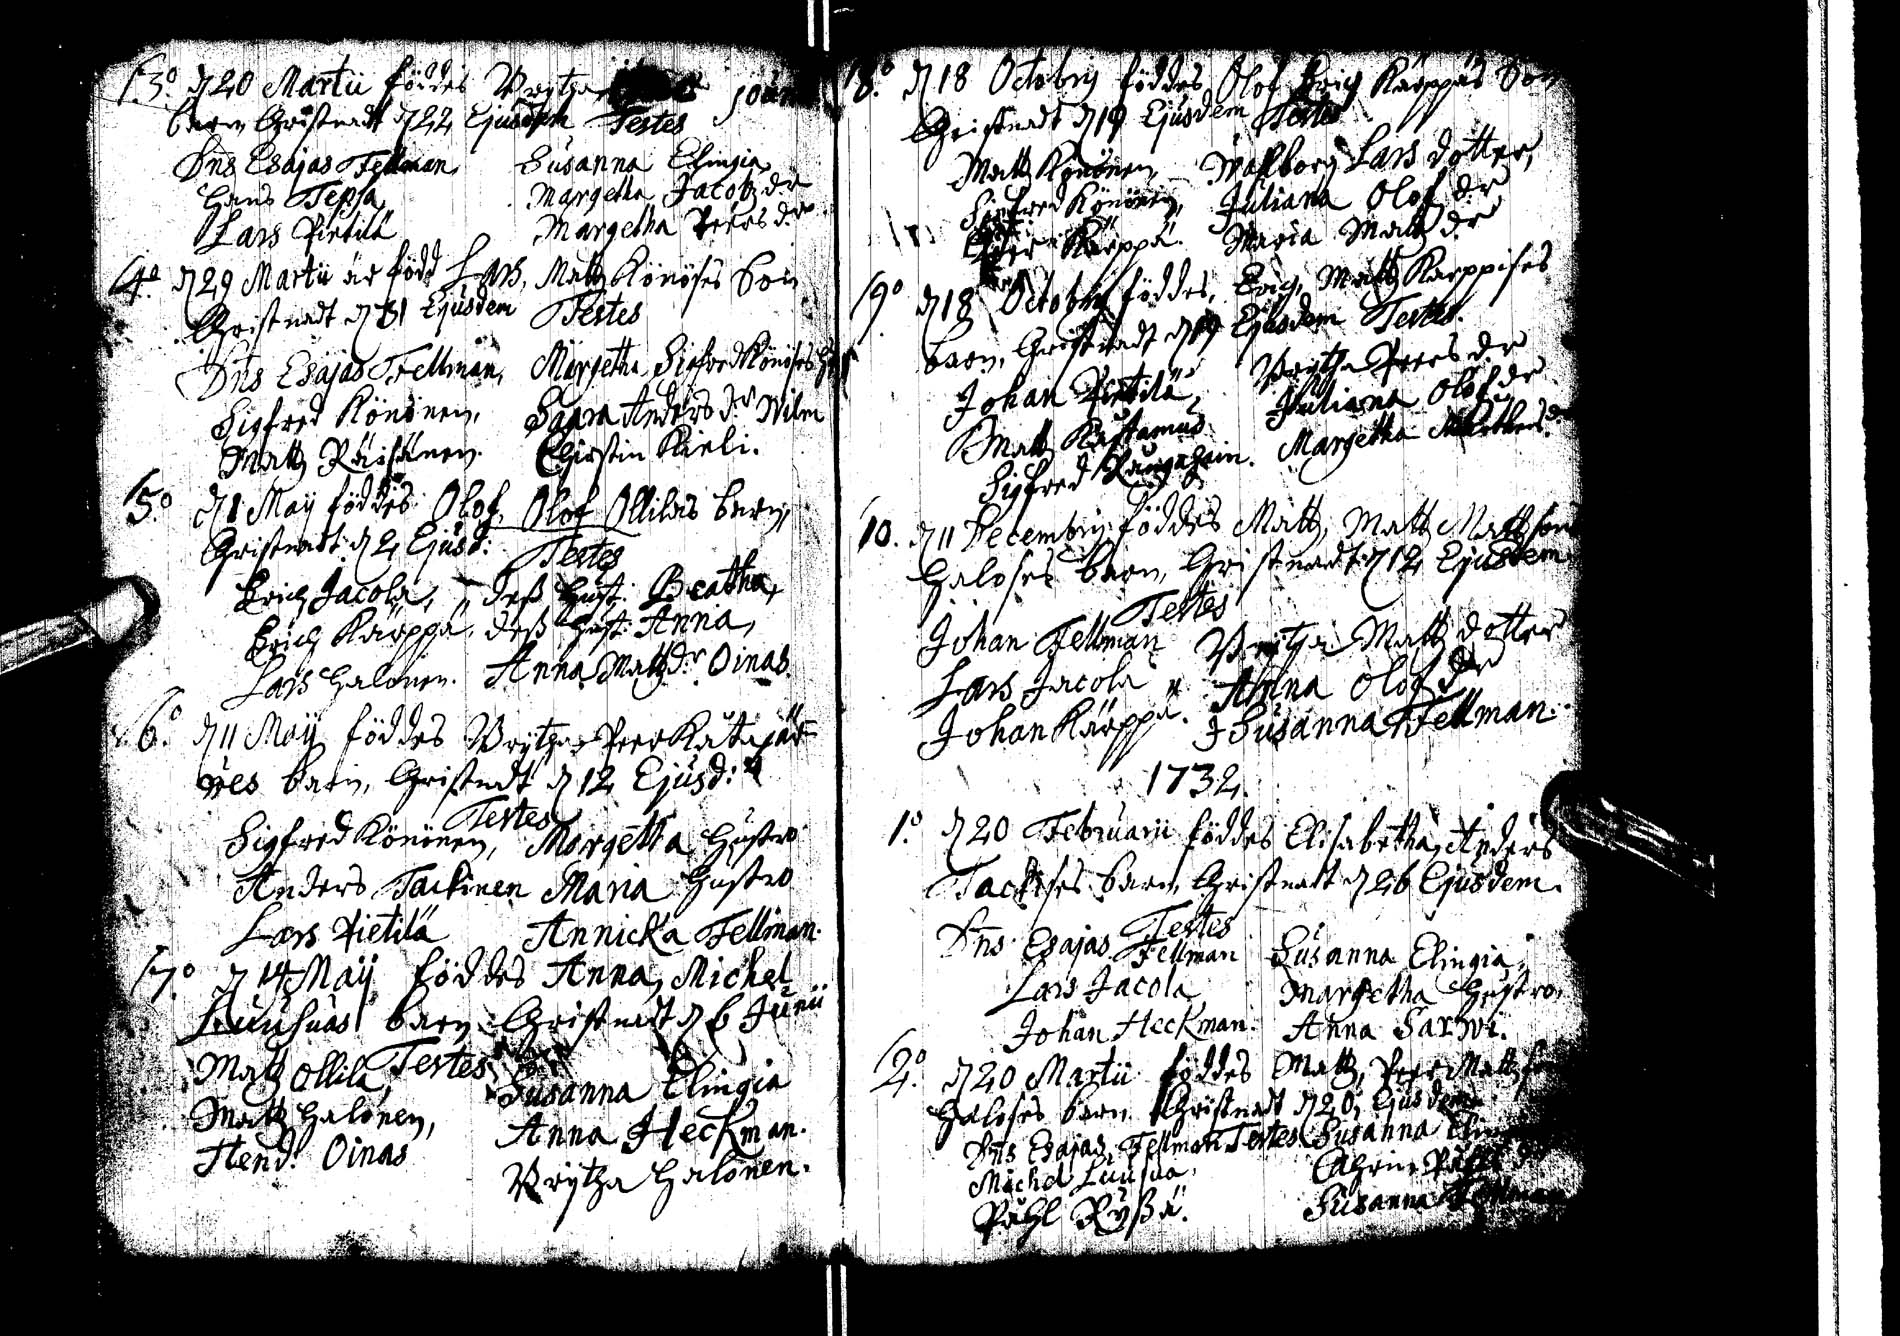 3.º d 20 Martii föddes Brytha
barn Christnadt d 22 Ejusdem Testes
Dns Esajas Fellman, Susanna Elingia
Hans Tepsa, Margetha Jacobs dr
Lars Pietilä Margetha Peers dr
4.º d 29 Martii är född Lars, Matts Könöses Son
Christnadt d 31 Ejusdem Testes
Dns Esajas Fellman, Margetha Sigfred Könöses
Sigfred Könönen, Saara Anders dr Wilm
Matts Räisänen. Christin Kieli.
5.º d 1 Maij föddes Olof, Olof Ollilas barn,
Christnadt d 2 Ejusd:
Testes
Erich Jacola, dess Hust: Beatha,
Erich Kärppä, dess Hust: Anna,
Lars Halonen. Anna Matts dr Oinas.
6.º d 11 Maij föddes Brytha Peer Katajär-
wes barn, Christnadt d 12 Ejusd:
Testes
Sigfred Könönen, Margetha Hustro
Anders Tackinen Maria Hustro
Lars Pietilä Annicka Fellman.
7.º d 14 Maij föddes Anna, Michel
Luusuas barn Christnadt d 6 Junii
Testes
Matts Ollila, Susanna Elingia
Matts Halonen, Anna Heckman.
Hend: Oinas Brytha Halonen.
8.º d 18 Octobris föddes Olof Erich Kärppäs Son
Christnadt d 19 Ejusdem Testes
Matts Könönen, Walborg Lars dotter,
Sigfred Könönen, Juliana Olofs dr
Kärppä. Maria Matts dr
9.º d 18 Octobris föddes, Erich, Matts Karppises
barn, Christnadt d 19 Ejusdem Testes.
Johan Pietilä, Brytha Peers dr
Matts Juliana Olofs dr
Sigfred Margetha
10. d 11 Decembris föddes Matts, Matts Mattssons
Haloses barn, Christnadt d 12 Ejusdem
Testes
Johan Fellman Brytha Matts dotter
Lars Jacola Anna Olofs dr
Johan Kärppä. Susanna Fellman.
1732.
1.º d 20 Februarii föddes Elisabetha, Anders
Tackises barn, Christnadt d 26 Ejusdem.
Testes
Dns Esajas Fellman Susanna Elingia,
Lars Jacola, Margetha Hustro,
Johan Heckman. Anna Sarwi.
2.º d 20 Martii föddes Matts, Peer Matts son
Haloses barn Christnadt d 20 Ejusdem
Dns Esajas Fellman Testes Susanna
Michel Luusua, Cathrin
Påhl Ryssä. Susanna Fellman